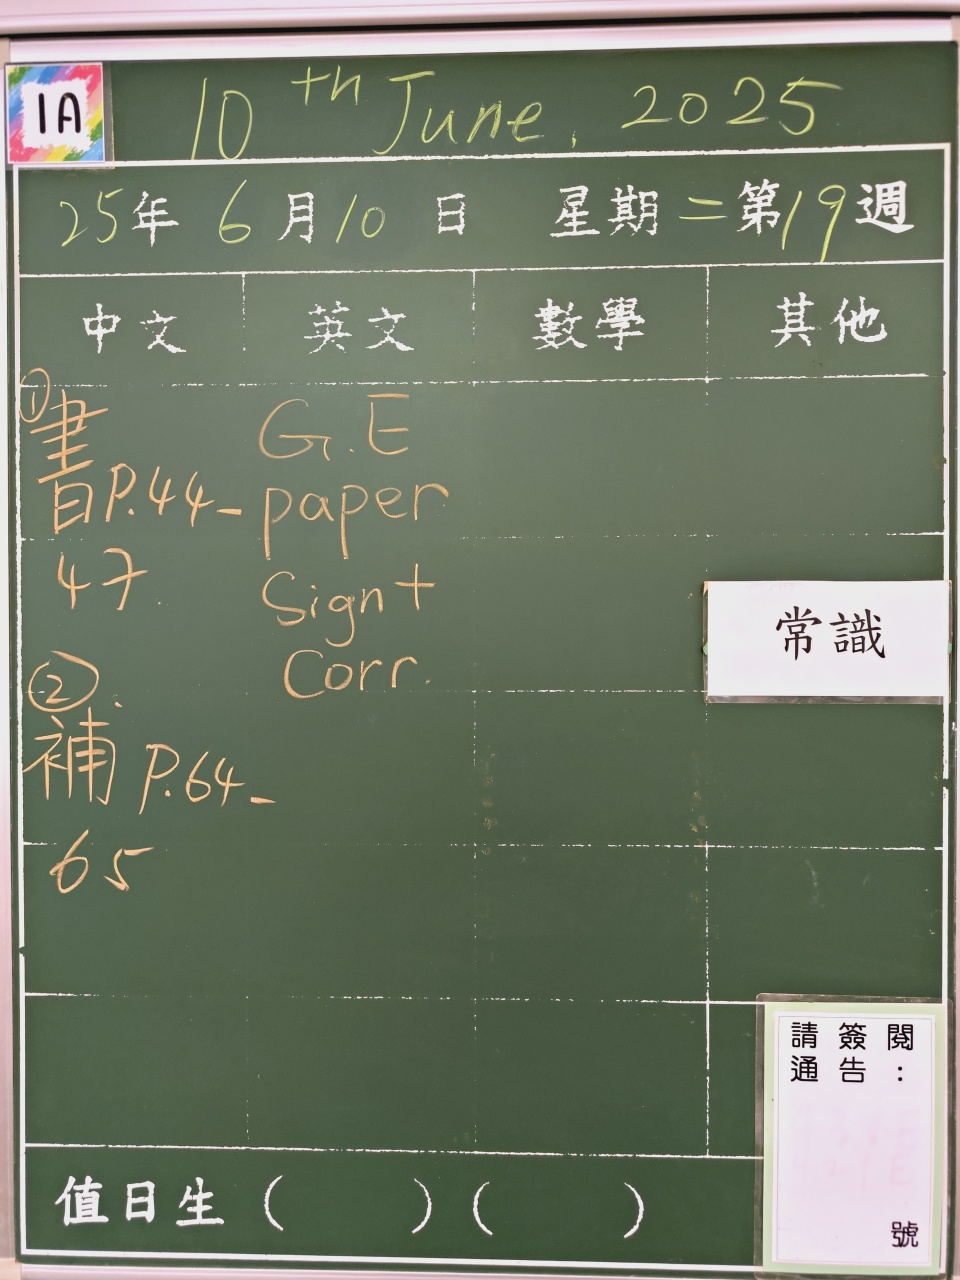 1A
10th June, 2025
25年 6月10日 星期二第19週
中文 英文 數學 其他
①
書P.44-
47.
②.
補 P.64-
65
G.E
paper
Sign+
Corr.
常識
請簽閱
通告:
號
值日生( )( )